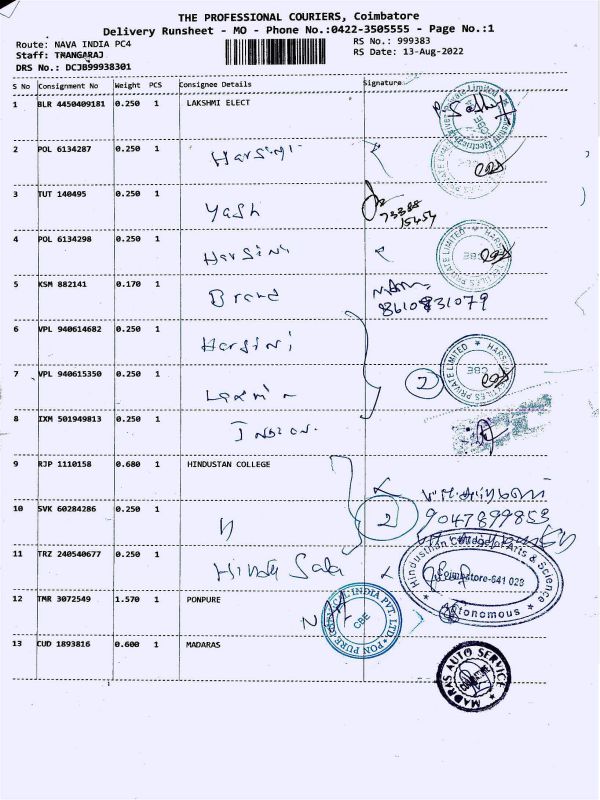 THE PROFESSIONAL COURIERS, Coimbatore
Delivery Runsheet - MO - Phone No.:0422-3505555 - Page No.:1
Route: NAVA INDIA PC4
RS No.: 999383
Staff: THANGARAJ
RS Date: 13-Aug-2022
DRS No.: DCJB99938301
S No Consignment No Weight PCS Consignee Details Signature
1 BLR 4450409181 0.250 1 LAKSHMI ELECT
2 POL 6134287 0.250 1 Harsini
3 TUT 140495 0.250 1 Yash
73388
15454
4 POL 6134298 0.250 1 Harsini
HARSINI TEXTILES PRIVATE LIMITED
CBE
5 KSM 882141 0.170 1 Brand
6 VPL 940614682 0.250 1 Harsini
HARSINI TEXTILES PRIVATE LIMITED
CBE
7 VPL 940615350 0.250 1 2
8 IXM 501949813 0.250 1
9 RJP 1110158 0.680 1 HINDUSTAN COLLEGE
10 SVK 60284286 0.250 1 2
9047899853
11 TRZ 240540677 0.250 1
Hindusthan College of Arts & Science
Coimbatore-641 028
Autonomous
12 TMR 3072549 1.570 1 PONPURE
PON PURE CHEMICAL INDIA PVT. LTD.
CBE
13 CUD 1893816 0.600 1 MADARAS
MADRAS AUTO SERVICE